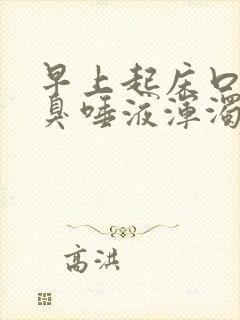 早上起床口
臭唾液浑浊
高洪